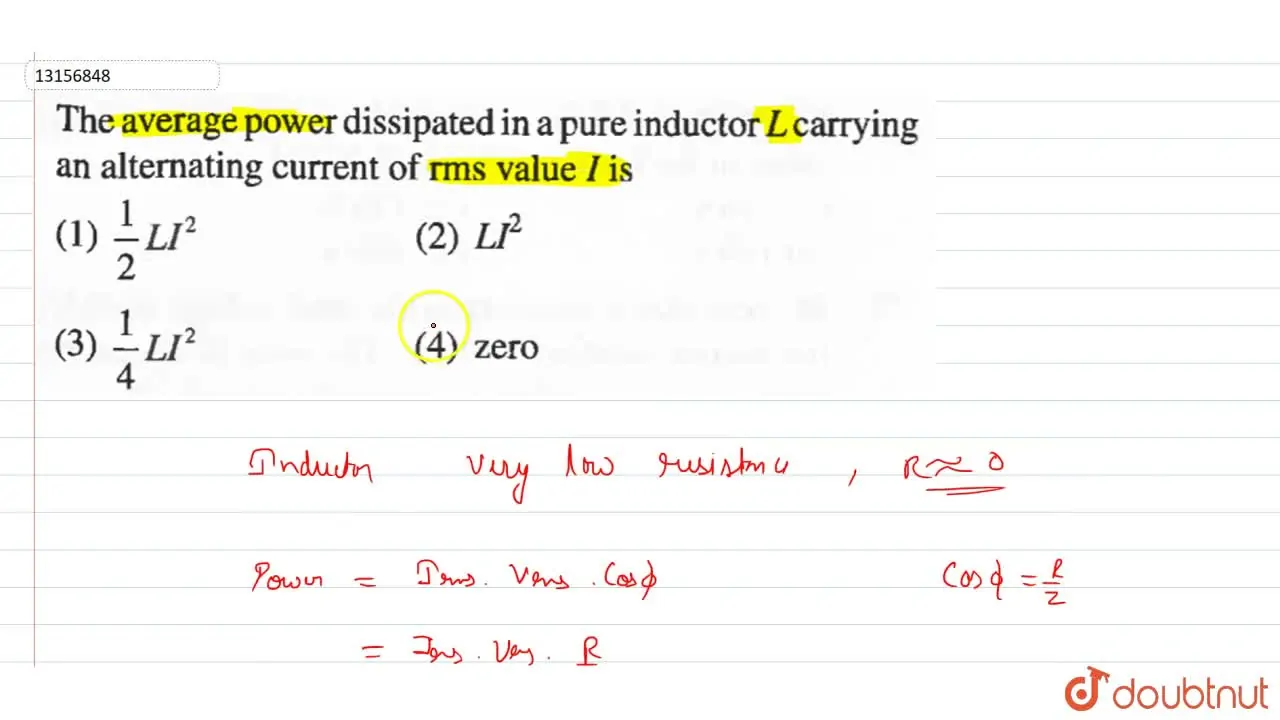 13156848
The average power dissipated in a pure inductor L carrying
an alternating current of rms value I is
(1) 1/2 LI² (2) LI²
(3) 1/4 LI² (4) zero
Inductor very low resistance , R≈0
Power = Irms. Vrms .Cosϕ Cosϕ = R/Z
= Irms . Vrms . R
doubtnut